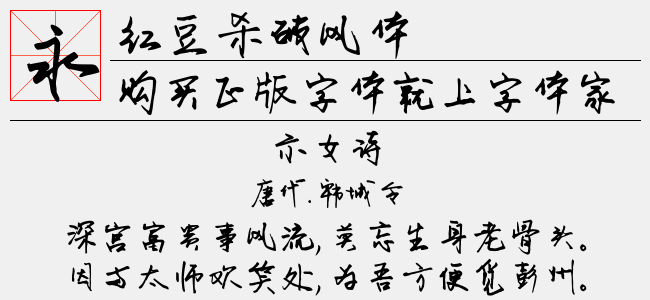 永
红豆杀破风体
购买正版字体就上字体家
示女诗
唐代.韩城令
深宫富贵事风流,莫忘生身老骨头。
因与太师欢笑处,为吾方便觅彭州。